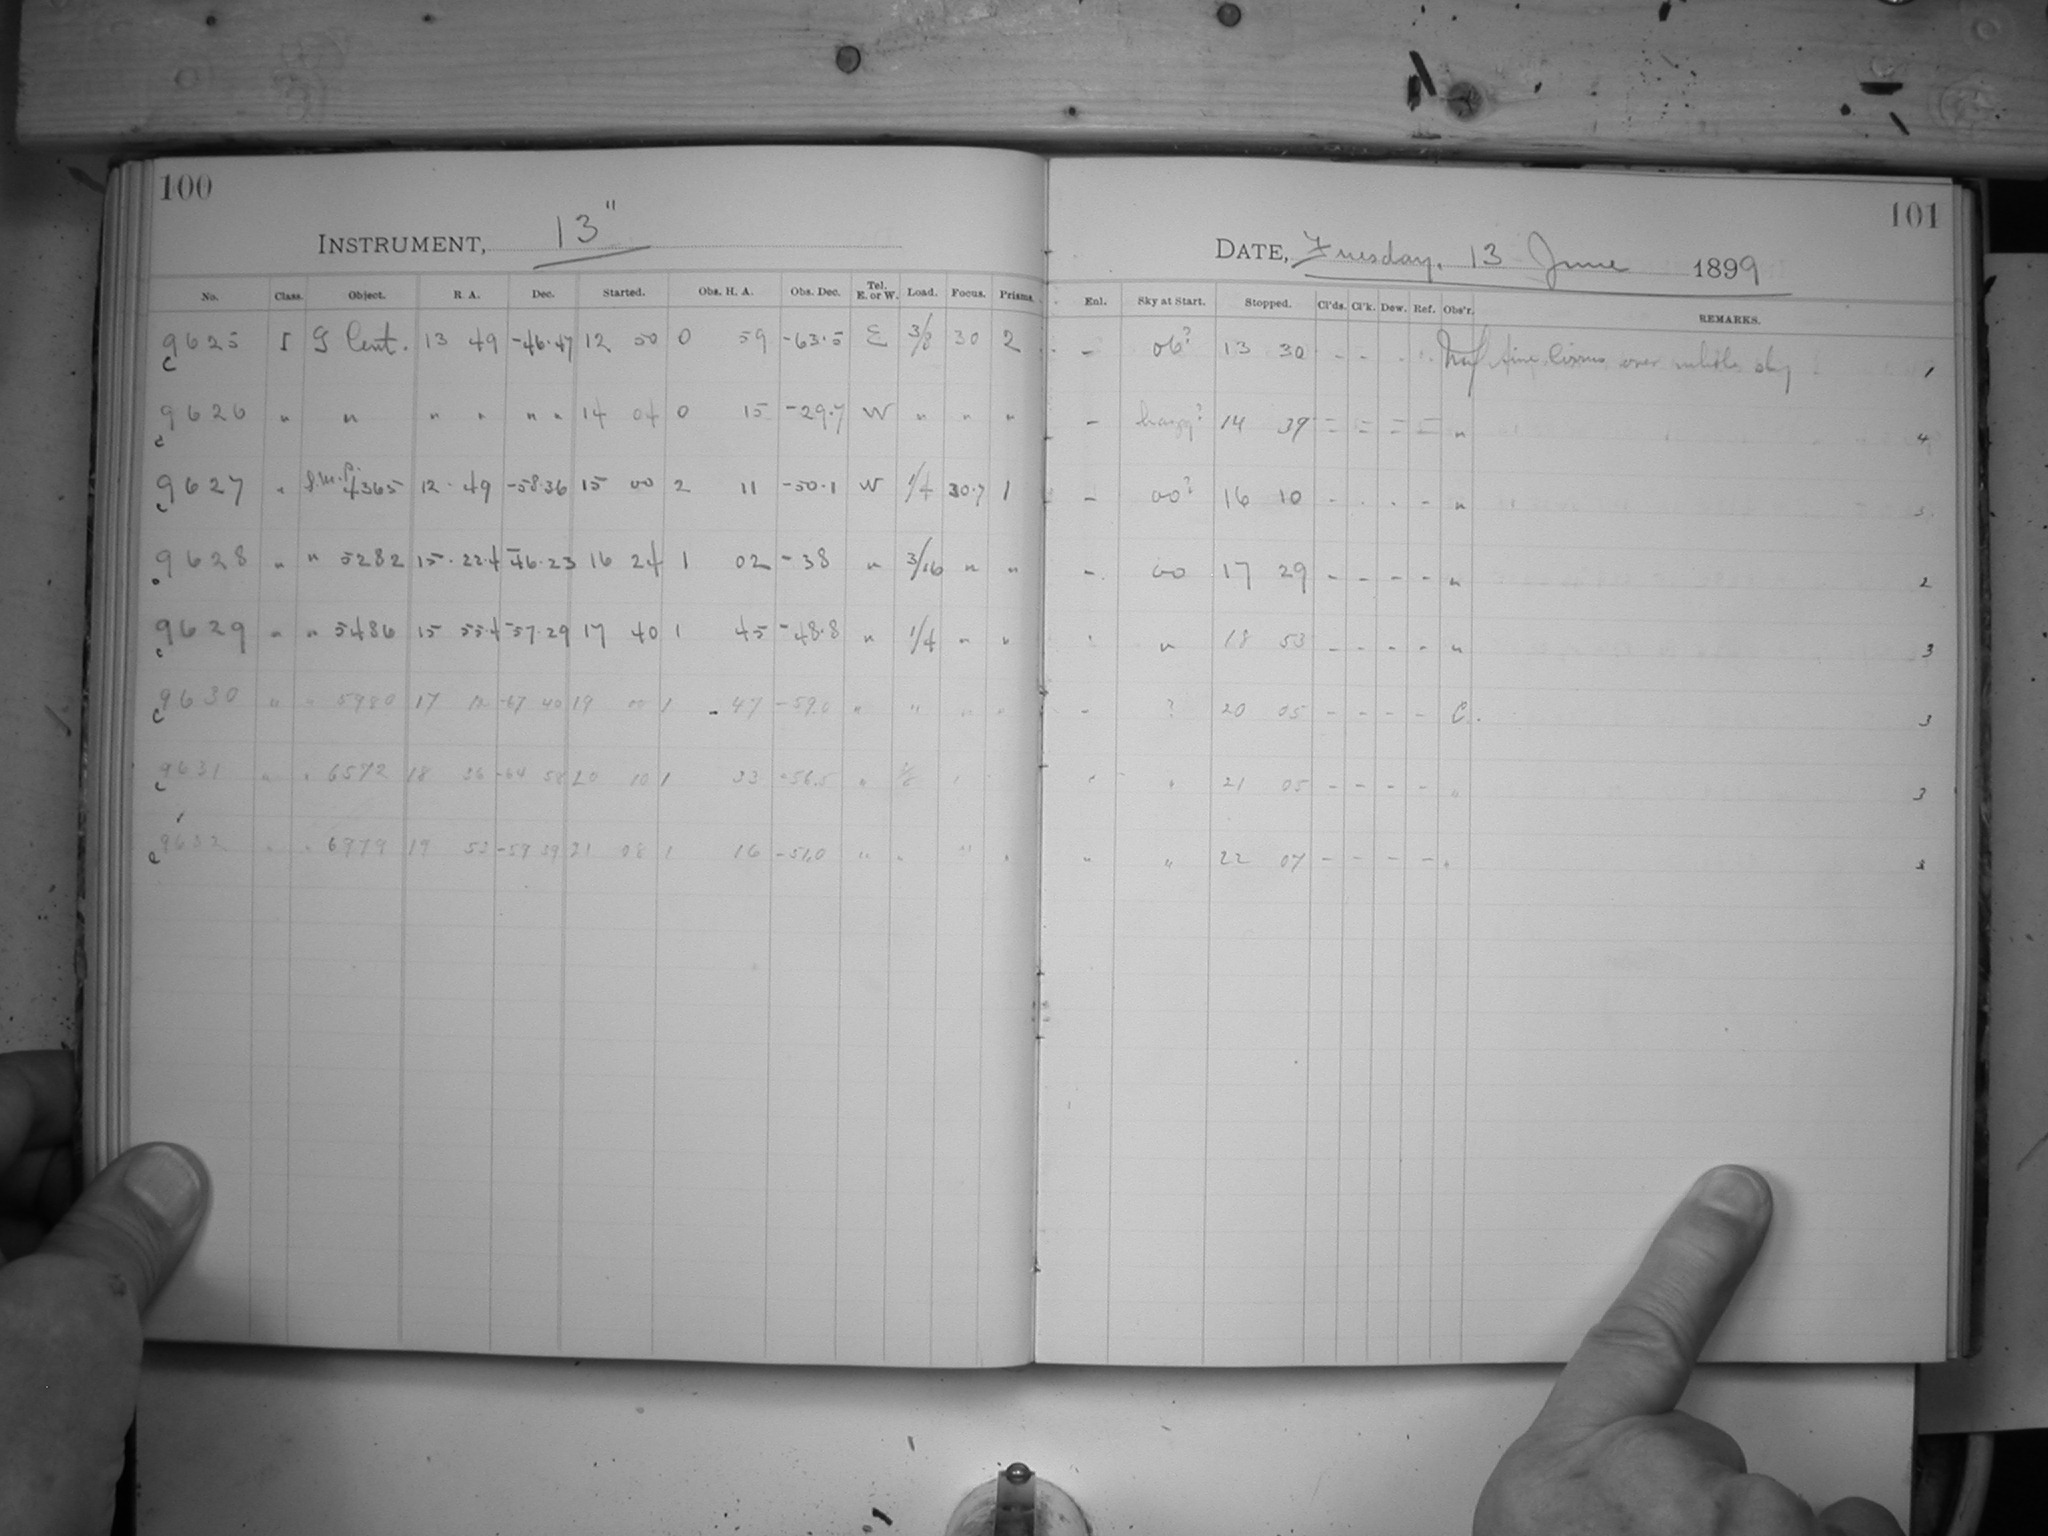 100
INSTRUMENT, 13"
No. Class. Object. R. A. Dec. Started. Obs. H. A. Obs. Dec. Tel. E. or W. Load. Focus. Prisms.
9625 I Cent. 13 49 -46.47 12 50 0 59 -63.5 E 3/8 30 2
c
9626 " " " " " " 14 04 0 15 -29.7 W " " "
c
9627 " 4365 12 49 -58.36 15 00 2 11 -50.1 W 1/4 30.7 1
c
9628 " " 5282 15 22.4 -46.23 16 24 1 02 -38 " 3/16 " "
9629 " " 5486 15 55.4 -57.29 17 40 1 45 -48.8 " 1/4 " "
c
9630 " " 5980 17 12 -67 40 19 00 1 47 -59.0 " " " "
c
9631 " " 6572 18 36 -64 58 20 10 1 33 -56.5 "
c
9632 " " 6979 19 53 -59 39 21 08 1 16 -51.0 " " " "
c
101
DATE, Tuesday, 13 June 1899
Enl. Sky at Start. Stopped. Cl'ds. Cl'k. Dew. Ref. Obs'r. REMARKS.
- 06? 13 30 - - - - fine Cirrus over whole sky 1
- hazy? 14 39 = = = = " 4
- 00? 16 10 - - - - "
- 00 17 29 - - - - " 2
" 18 53 - - - - " 3
- ? 20 05 - - - - C. 3
" " 21 05 - - - - " 3
" " 22 07 - - - - " 3